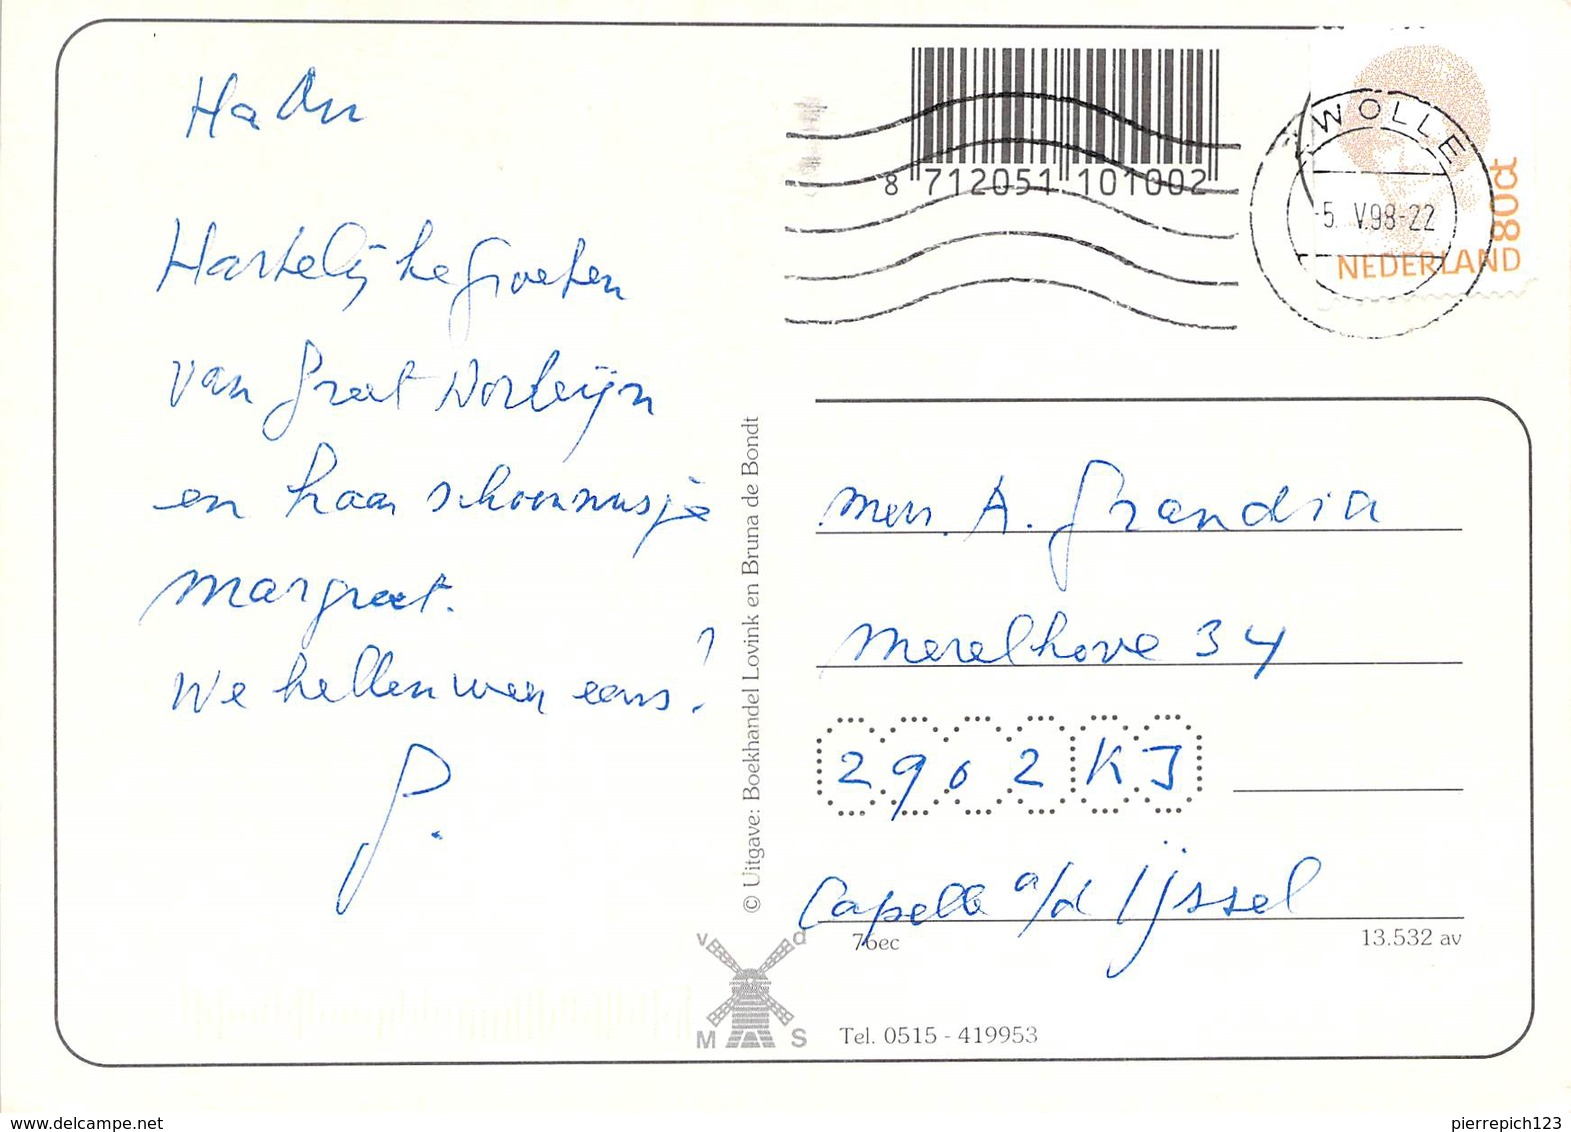 Hartelijke groeten
van Greet Dorleijn
en haar schoonzusje
margreet.
We bellen weer eens!
P.
8 712051 101002
ZWOLLE
-5. V.98-22
80ct
NEDERLAND
© Uitgave: Boekhandel Lovink en Bruna de Bondt
mevr. A. Grandia
Merelhove 34
2902 KJ
Capelle a/d IJssel
76ec
13.532 av
v d
M S
Tel. 0515 - 419953
www.delcampe.net
pierrepich123